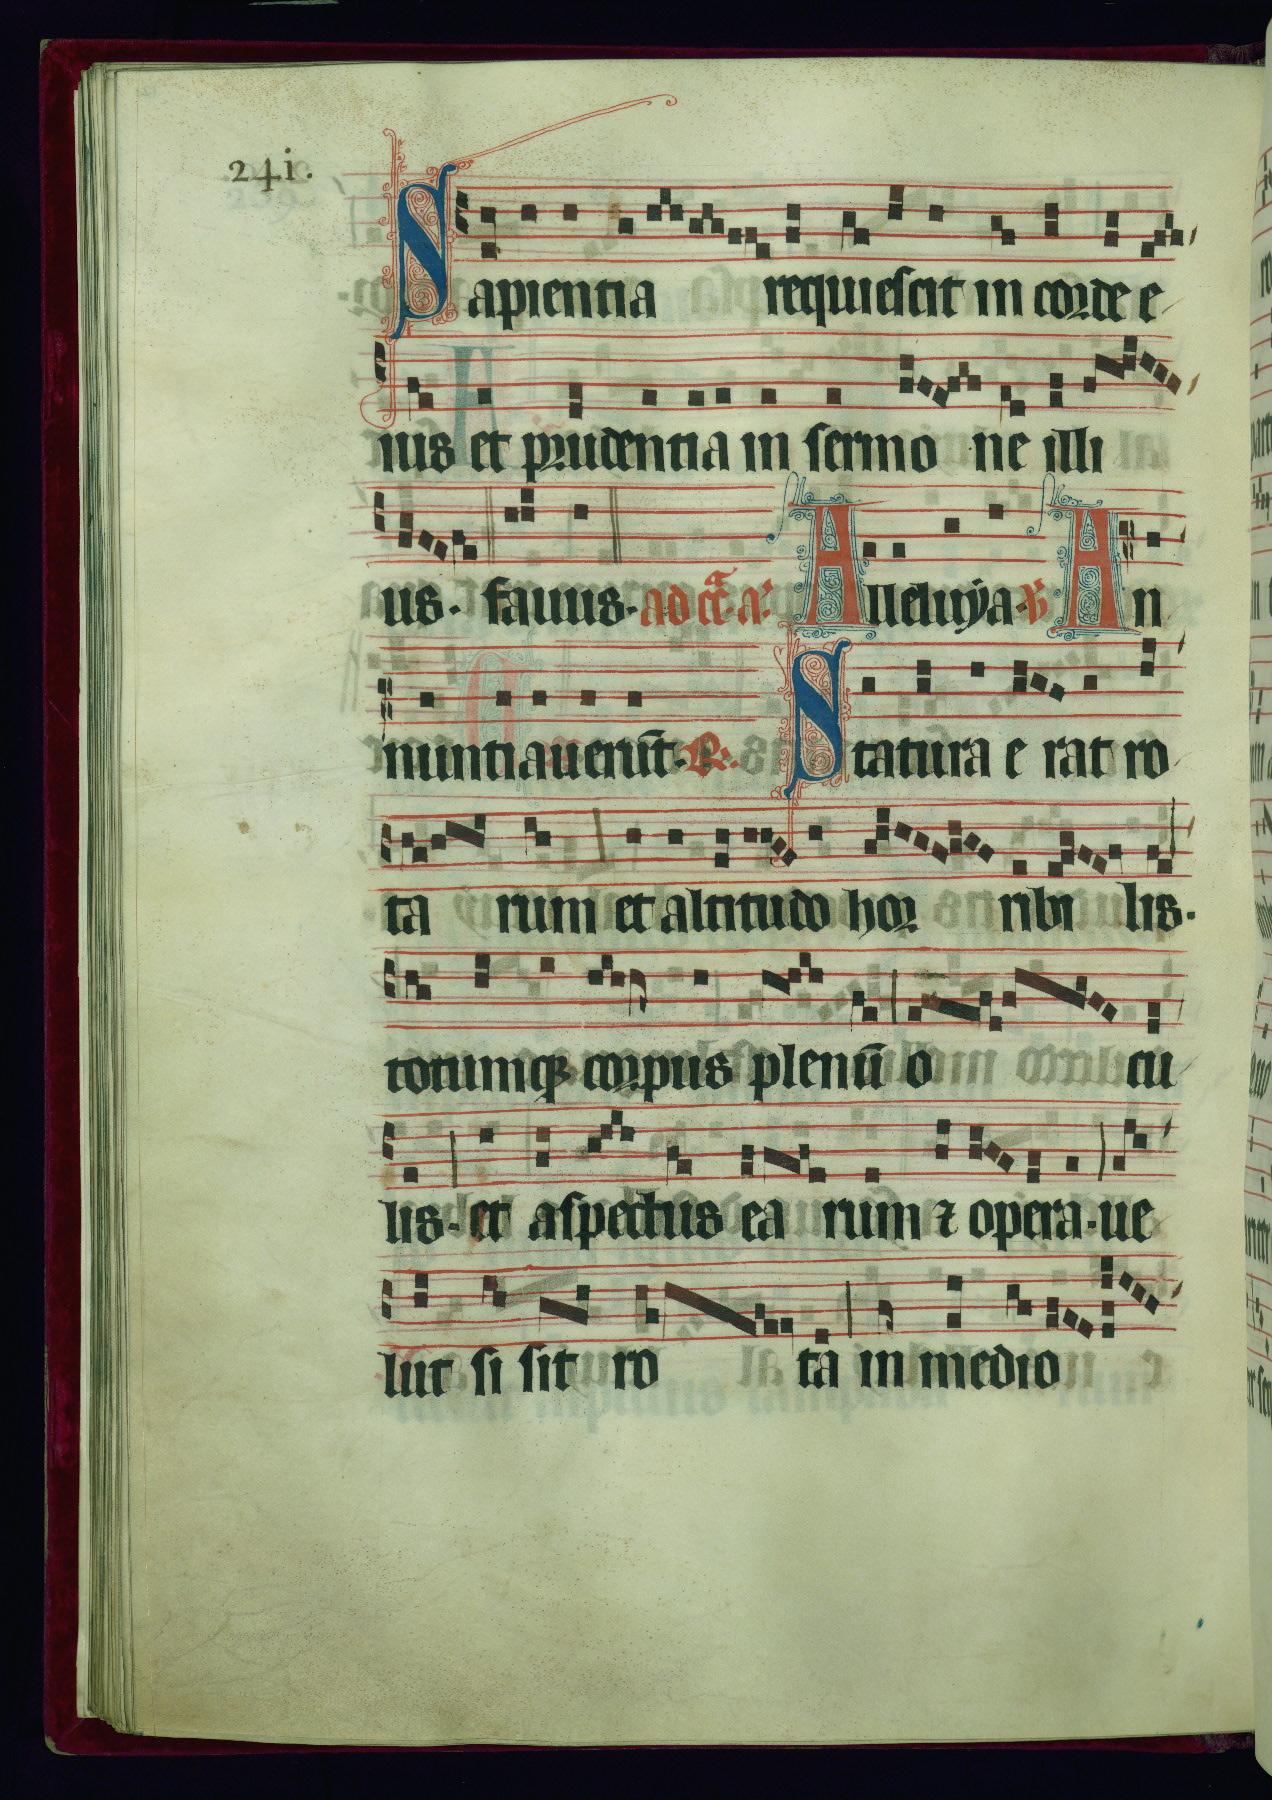 24i.
Sapientia requiescit in corde e
ius et prudentia in sermo ne illi
us. fauus. ad cc̄a a. Alleluya. V An
nuntiauerūt. R. Statura e rat ro
ta rum et altitudo hor ribi lis.
totumqꝫ corpus plenū o cu
lis. et aspectus ea rum ⁊ opera. ue
lut si sit ro ta in medio